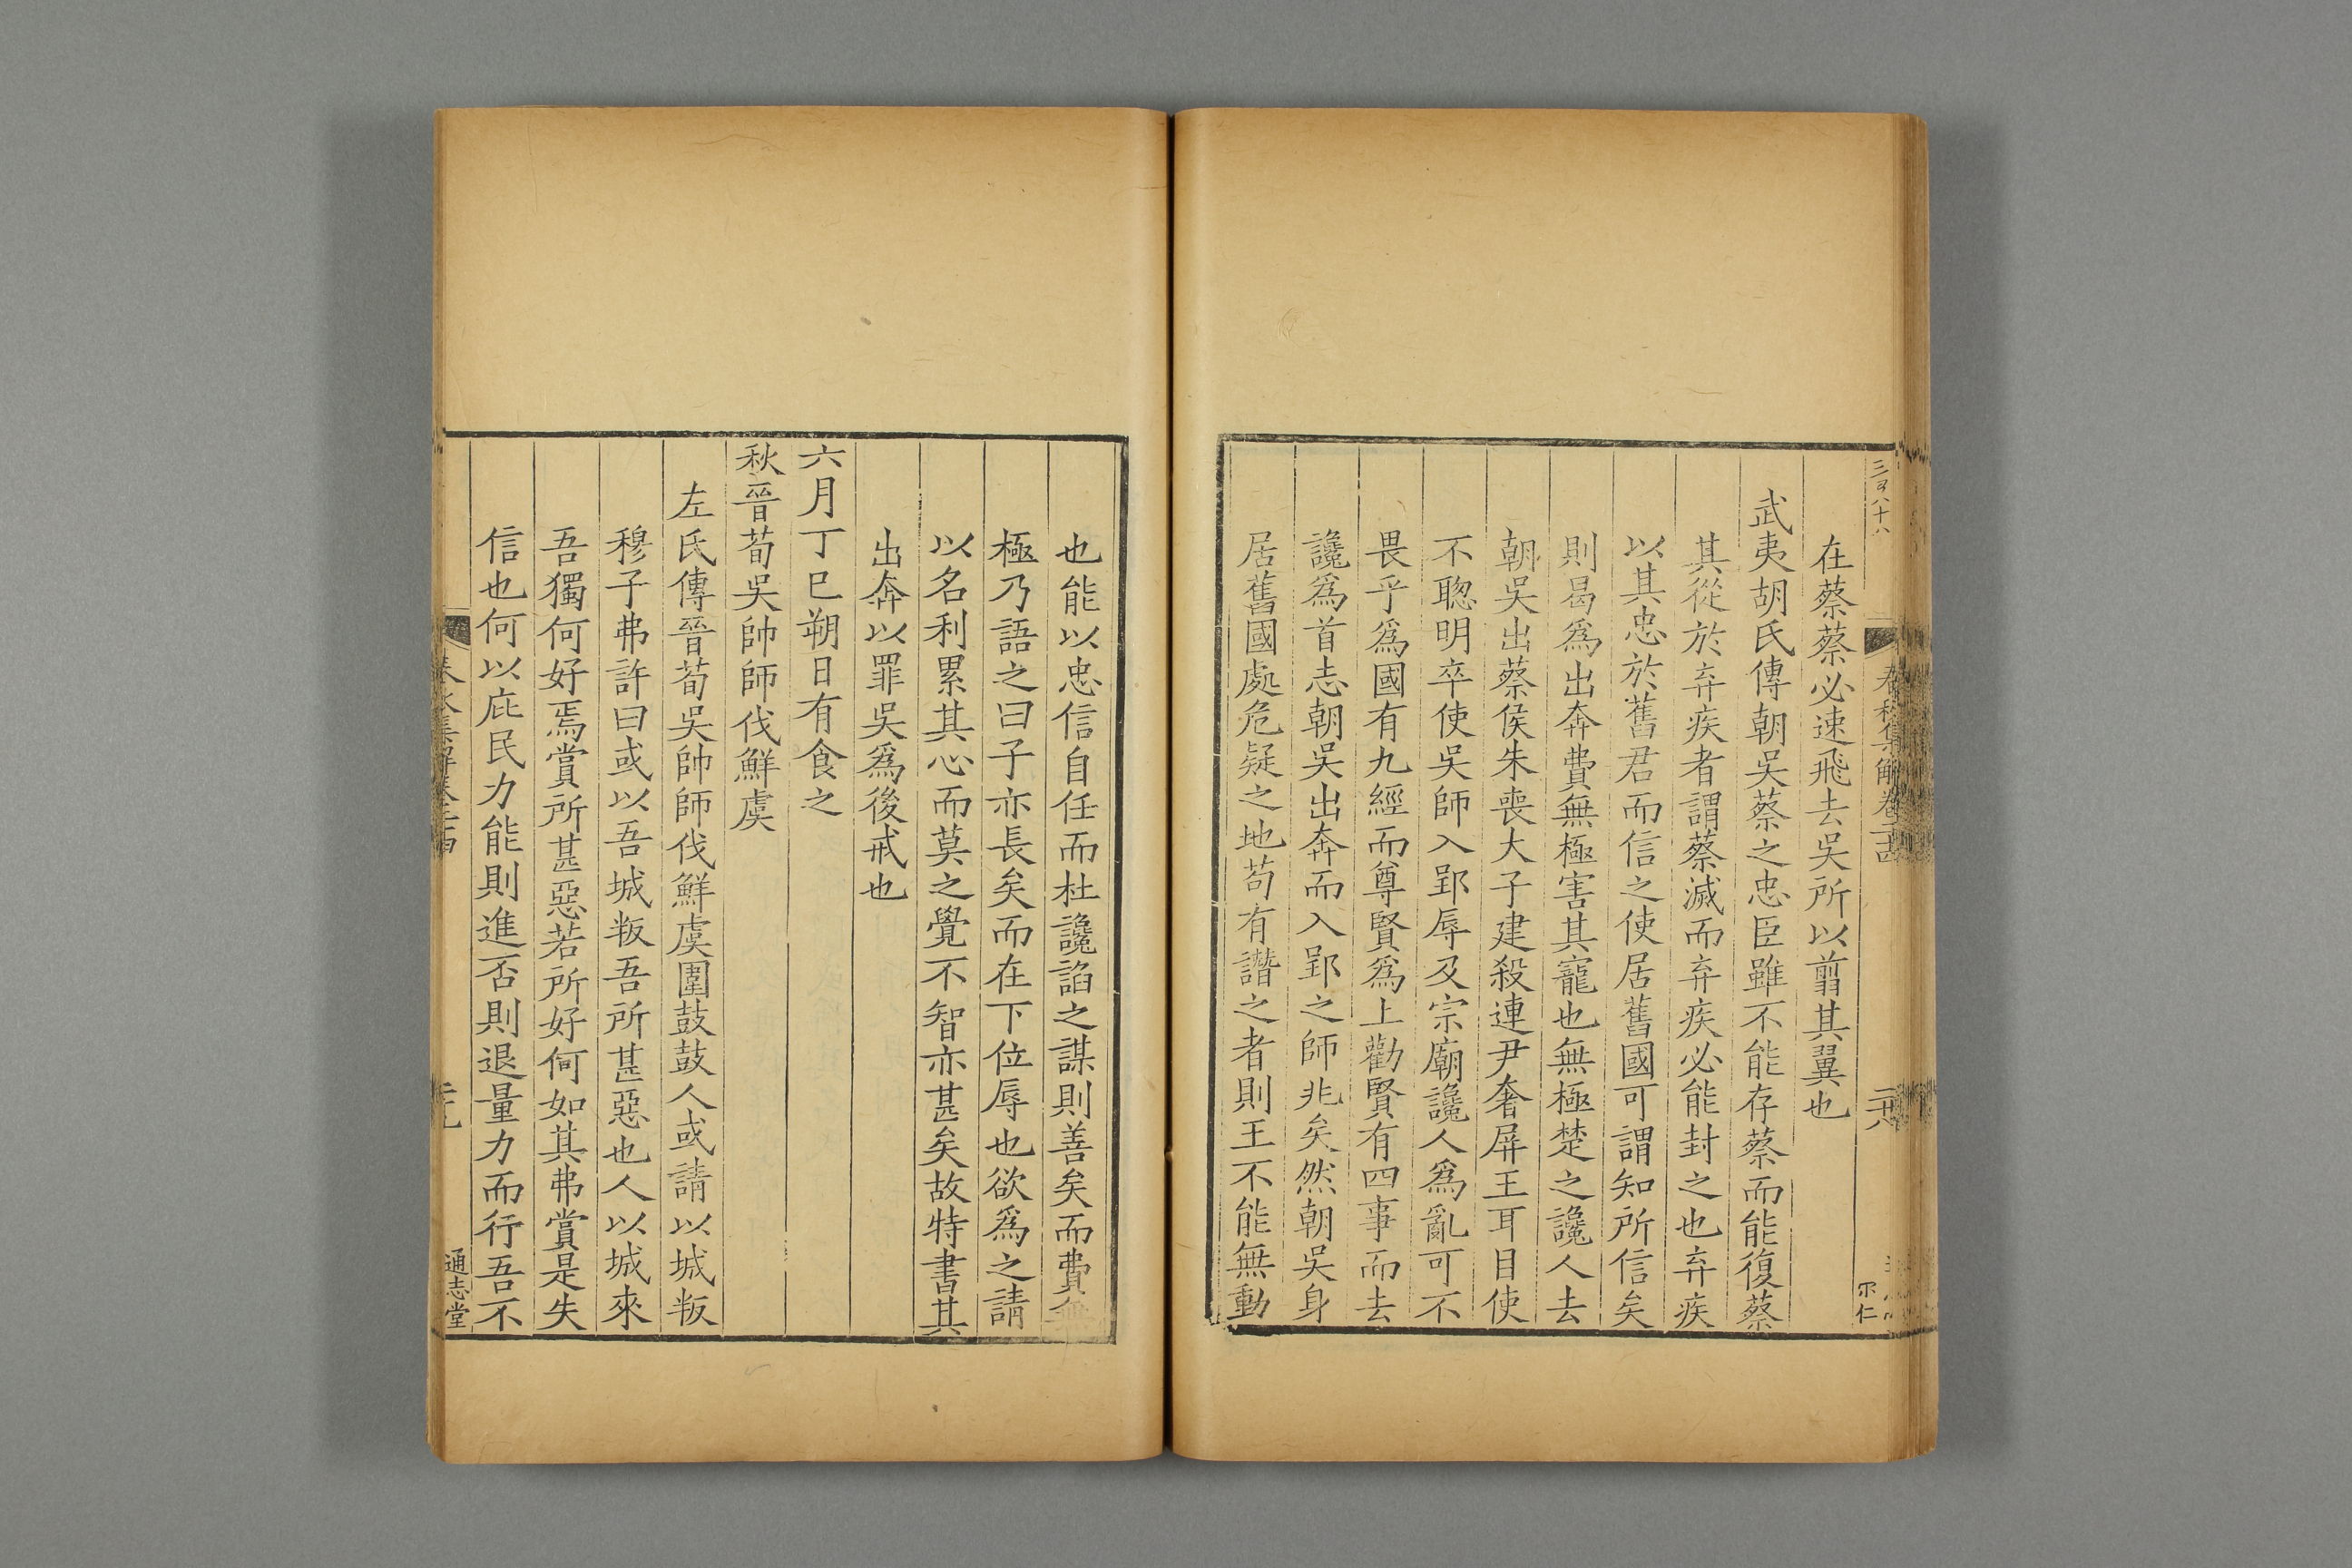 三百八十八
春秋集解卷二十四
二十八
在蔡蔡必速飛去吳所以翦其翼也
武夷胡氏傳朝吳蔡之忠臣雖不能存蔡而能復蔡
其從於弃疾者謂蔡滅而弃疾必能封之也弃疾
以其忠於舊君而信之使居舊國可謂知所信矣
則曷爲出奔費無極害其寵也無極楚之讒人去
朝吳出蔡侯朱喪大子建殺連尹奢屏王耳目使
不聦明卒使吳師入郢辱及宗廟讒人爲亂可不
畏乎爲國有九經而尊賢爲上勸賢有四事而去
讒爲首志朝吳出奔而入郢之師兆矣然朝吳身
居舊國處危疑之地苟有譖之者則王不能無動
也能以忠信自任而杜讒諂之謀則善矣而費無
極乃語之曰子亦長矣而在下位辱也欲爲之請
以名利累其心而莫之覺不智亦甚矣故特書其
出奔以罪吳爲後戒也
六月丁巳朔日有食之
秋晉荀吳帥師伐鮮虞
左氏傳晉荀吳帥師伐鮮虞圍鼓鼓人或請以城叛
穆子弗許曰或以吾城叛吾所甚惡也人以城來
吾獨何好焉賞所甚惡若所好何如其弗賞是失
信也何以庇民力能則進否則退量力而行吾不
通志堂